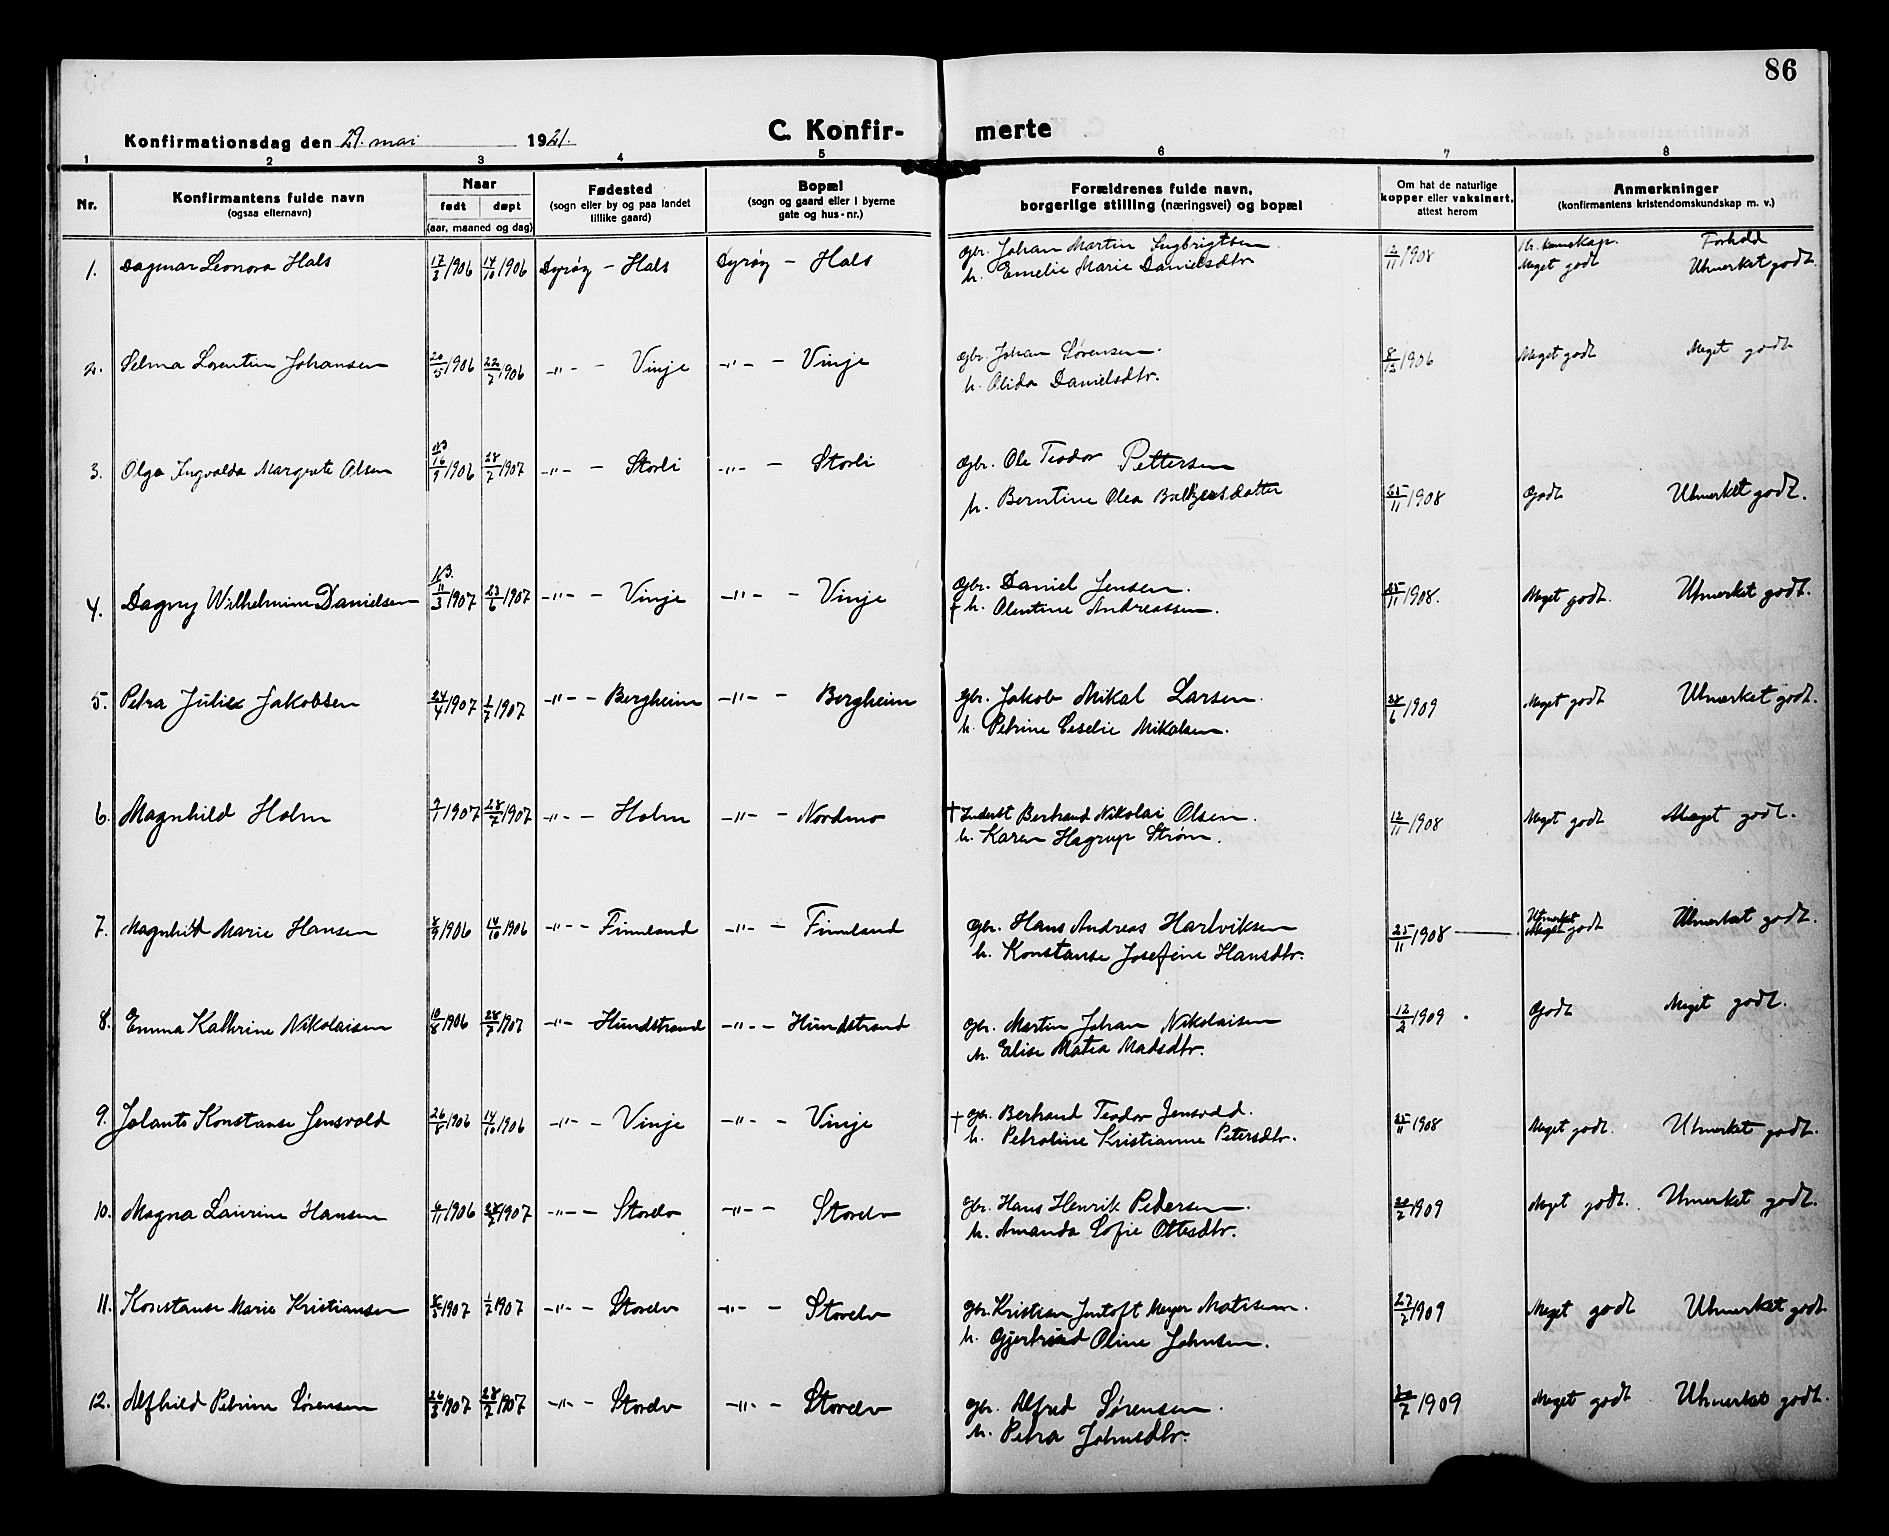 86
Konfirmationsdag den 29. mai 1921.
C. Konfir- merte
1 2 3 4 5 6 7 8
Nr.
Konfirmantens fulde navn
(ogsaa efternavn)
Naar
født døpt
(aar, maaned og dag)
Fødested
(sogn eller by og paa landet
tillike gaard)
Bopæl
(sogn og gaard eller i byerne
gate og hus-nr.)
Forældrenes fulde navn,
borgerlige stilling (næringsvei) og bopæl
Om hat de naturlige
kopper eller vaksinert,
attest herom
Anmerkninger
(konfirmantens kristendomskundskap m. v.)
Kr. kunnskap. Forhold
1. Dagmar Leonora Hals 17/3 1906 14/10 1906 Dyrøy - Hals Dyrøy - Hals Gbr. Johan Martin Ingbrigtsen 2/11 1908 Meget godt Utmerket godt.
h. Emelie Marie Danielsdtr
2. Selma Lorentin Johansen 20/5 1906 22/7 1906 -"- - Vinje -"- - Vinje Gbr. Johan Sørensen. 8/12 1906 Meget godt Meget godt
h. Olida Danielsdtr.
3. Olga Ingvalda Margrete Olsen 16/9 1906 28/7 1907 -"- - Storli -"- - Storli Gbr. Ole Teodor Pettersen
h. Berntine Olea datter 25/11 1908 Godt Utmerket godt.
4. Dagny Wilhelmine Danielsen 11/3 1907 23/6 1907 -"- - Vinje -"- - Vinje Gbr. Daniel Jensen. 25/11 1908. Meget godt. Utmerket godt.
† h. Olentine Andreassen.
5. Petra Julie Jakobsen 24/4 1907 1/7 1907 -"- - Bergheim -"- - Bergheim Gbr. Jakob Mikal Larsen. 28/6 1909 Meget godt Utmerket godt.
h. Petrine Mikalsen.
6. Magnhild Holm 1907 28/7 1907 -"- - Holm -"- - Nordmo † Inderst Bertrand Nikolai Olsen. 12/11 1908 Meget godt Meget godt.
h. Karen Hagrup Strøm.
7. Magnhild Marie Hansen 8/9 1906 14/10 1906 -"- - Finnland -"- - Finnland Gbr. Hans Andreas Hartviksen 25/11 1908 Utmerket godt Utmerket godt.
h. Konstanse Josefine Hansdtr.
8. Emma Kathrine Nikolaisen 10/8 1906 28/7 1907 -"- - Hundstrand -"- - Hundstrand Gbr. Martin Johan Nikolaisen 12/2 1909 Godt Meget godt.
h. Elise Matea Madsdtr.
9. Jolanto Konstanse Jensvold 26/8 1906 14/10 1906 -"- - Vinje -"- - Vinje † Gbr. Bertrand Teodor Jensvold. 25/11 1908 Meget godt. Utmerket godt.
h. Petroline Kristianne Petersdtr.
10. Magna Laurine Hansen 1906 28/7 1907 -"- - Storelv -"- - Storelv Gbr. Hans Henrik Pedersen. 1909 Meget godt. Utmerket godt.
h. Amanda Sofie Ottesdtr.
11. Konstanse Marie Kristiansen 8/3 1907 1/7 1907 -"- - Storelv -"- - Storelv Gbr. Kristian Jentoft Meyer Matisen. 27/7 1909 Meget godt Utmerket godt.
h. Gjertrud Oline Johnsen.
12. Alfhild Petrine Sørensen 26/3 1907 28/7 1907 -"- - Storelv -"- - Storelv Gbr. Alfred Sørensen. 1909 Meget godt Utmerket godt.
h. Petra Johnsdtr.